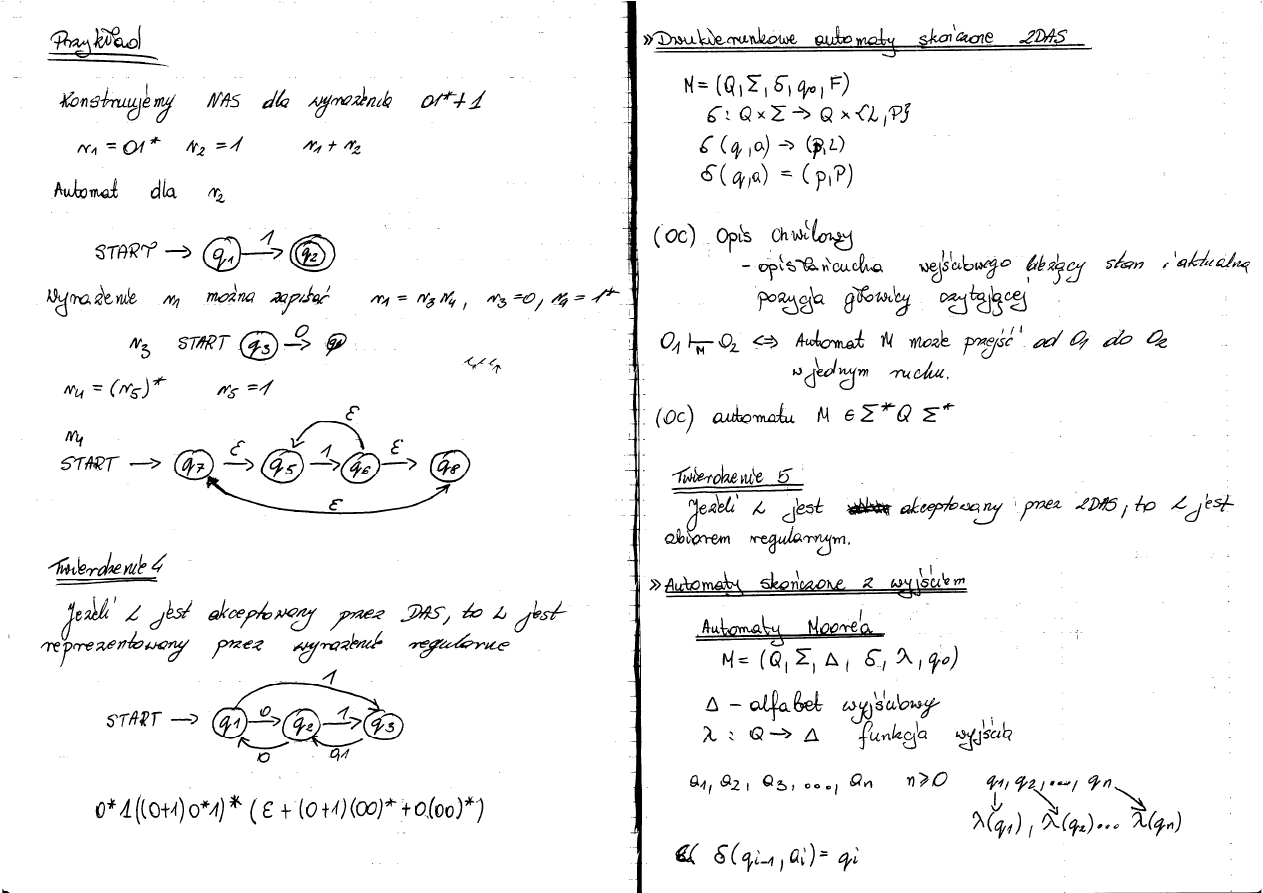 Przykład
Konstruujemy NAS dla wyrażenia 01*+1
r₁ = 01* r₂ = 1 r₁ + r₂
Automat dla r₂
START → q₁ 1 q₂
Wyrażenie r₁ można zapisać r₁ = r₃ r₄, r₃ = 0, r₄ = 1*
r₃ START q₃ 0 →
r₄ = (r₅)* r₅ = 1
ε
r₄
START → q₇ ε → q₅ 1 → q₆ ε → q₈
ε
Twierdzenie 4
Jeżeli L jest akceptowany przez DAS, to L jest
reprezentowany przez wyrażenie regularne
1
START → q₁ 0 → q₂ 1 → q₃
0 0,1
0*1((0+1)0*1)* (ε + (0+1)(00)* + 0(00)*)
» Dwukierunkowe automaty skończone 2DAS
M = (Q, Σ, δ, q₀, F)
δ : Q × Σ → Q × {L, P}
δ(q, a) → (p, L)
δ(q, a) = (p, P)
(OC) Opis chwilowy
- opis łańcucha wejściowego bieżący stan i aktualna
pozycja głowicy czytającej
O₁ ⊢M O₂ ⇔ Automat M może przejść od O₁ do O₂
w jednym ruchu.
(OC) automatu M ∈ Σ* Q Σ*
Twierdzenie 5
Jeżeli L jest akceptowany przez 2DAS, to L jest
zbiorem regularnym.
» Automaty skończone z wyjściem
Automaty Moore'a
M = (Q, Σ, Δ, δ, λ, q₀)
Δ - alfabet wyjściowy
λ : Q → Δ funkcja wyjścia
a₁, a₂, a₃, ..., aₙ n ≥ 0 q₁, q₂, ..., qₙ
λ(q₁), λ(q₂) ... λ(qₙ)
δ(qᵢ₋₁, aᵢ) = qᵢ